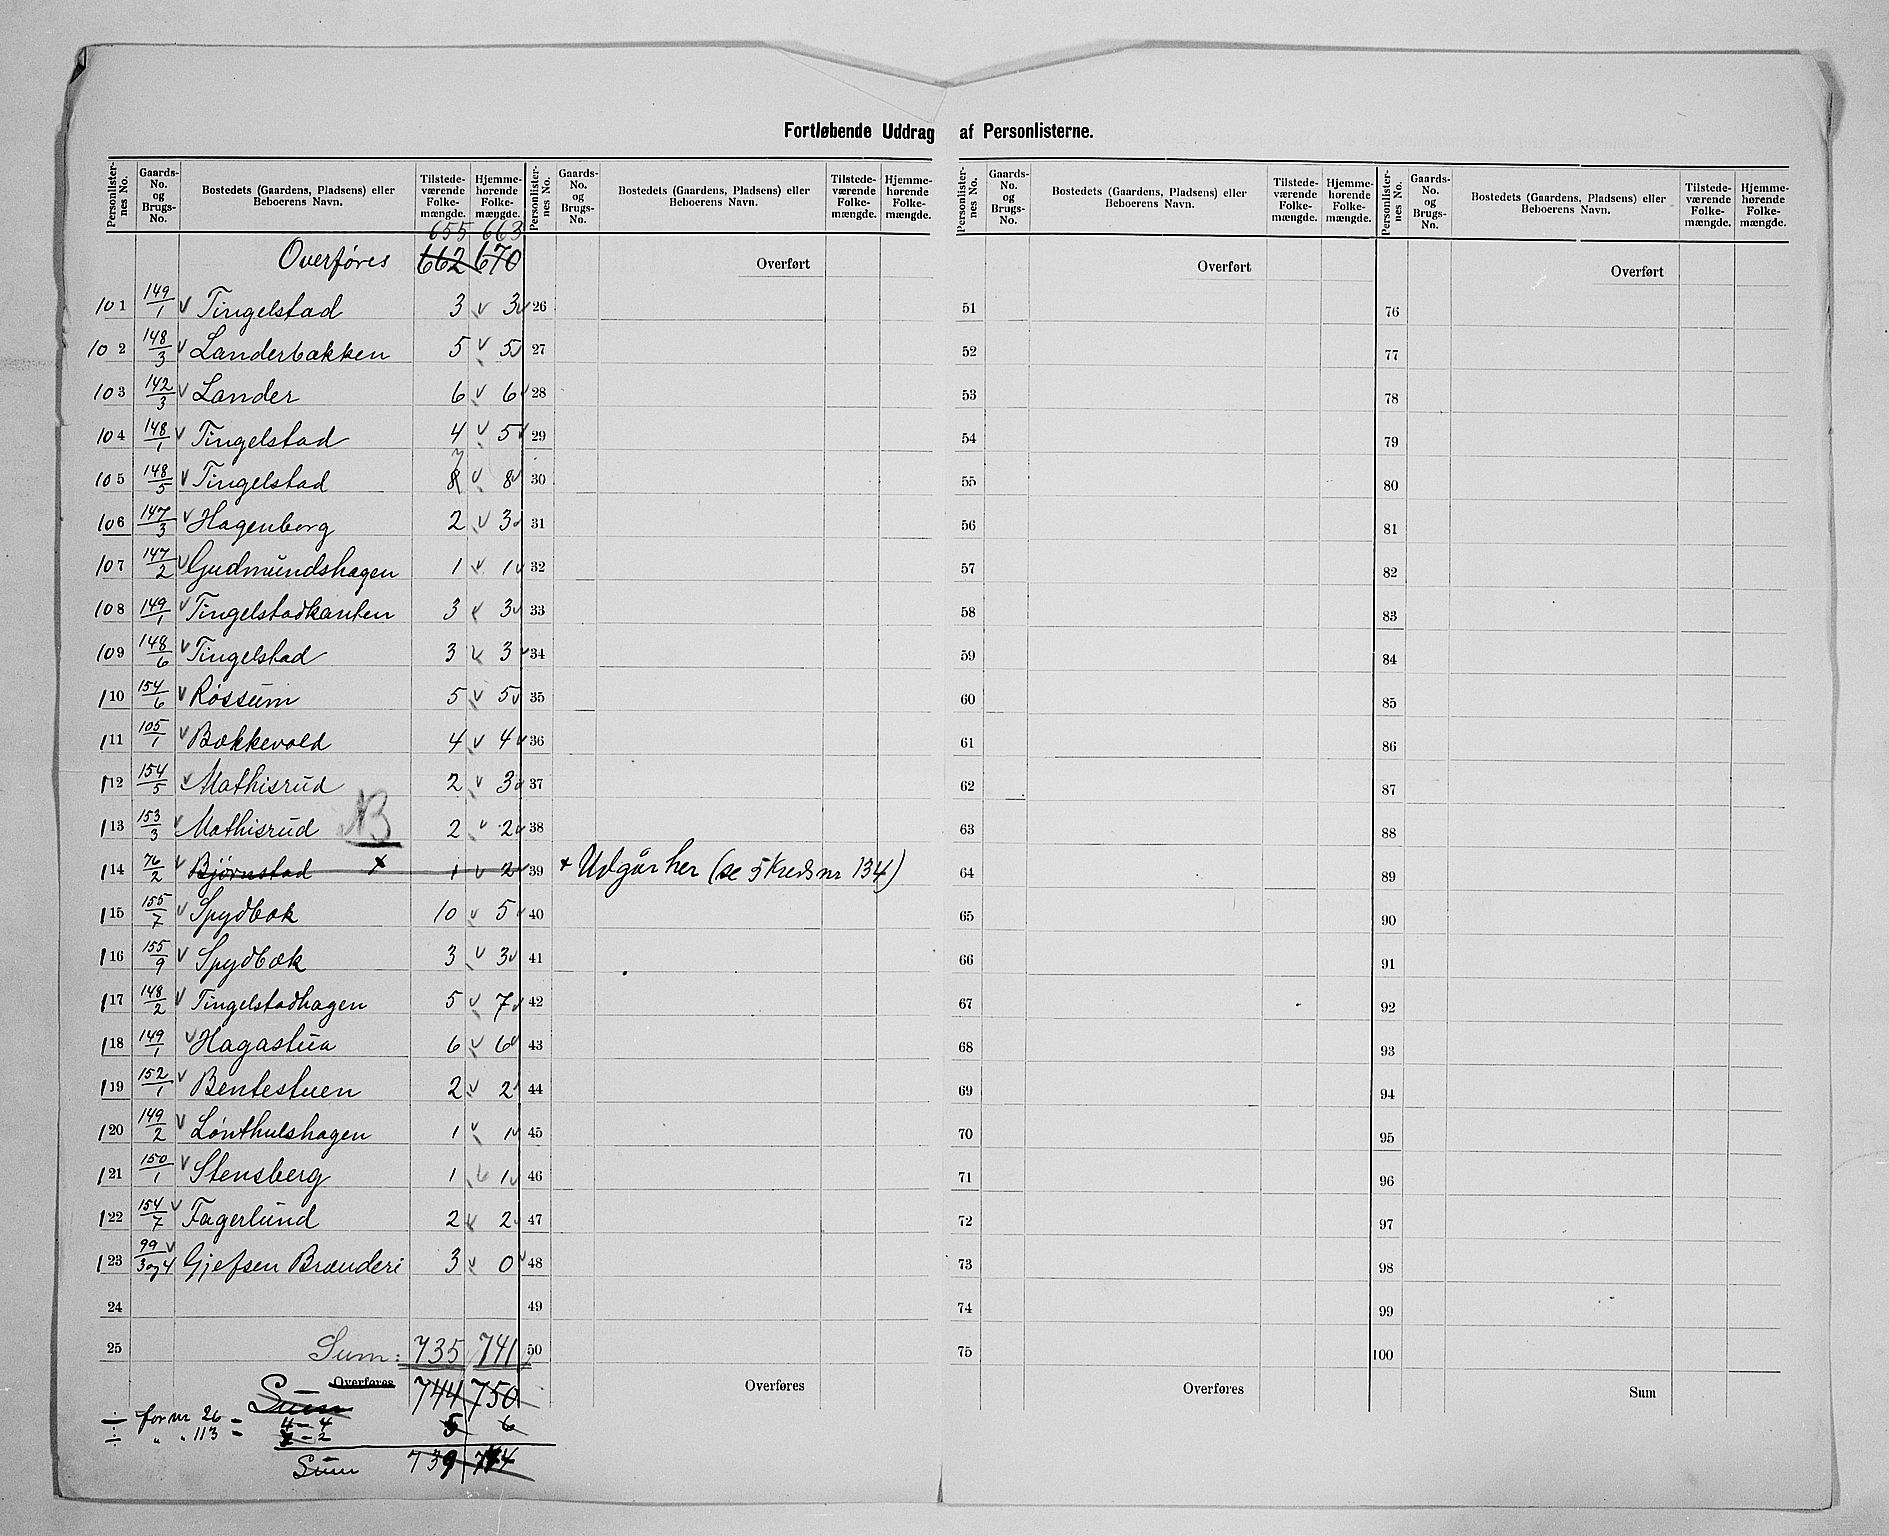 Fortløbende Uddrag af Personlisterne.
Personlister-nes No. Gaards-No. og Brugs-No. Bostedets (Gaardens, Pladsens) eller Beboerens Navn. Tilstede-værende Folke-mængde. Hjemme-hørende Folke-mængde. Personlister-nes No. Gaards-No. og Brugs-No. Bostedets (Gaardens, Pladsens) eller Beboerens Navn. Tilstede-værende Folke-mængde. Hjemme-hørende Folke-mængde. Personlister-nes No. Gaards-No. og Brugs-No. Bostedets (Gaardens, Pladsens) eller Beboerens Navn. Tilstede-værende Folke-mængde. Hjemme-hørende Folke-mængde. Personlister-nes No. Gaards-No. og Brugs-No. Bostedets (Gaardens, Pladsens) eller Beboerens Navn. Tilstede-værende Folke-mængde. Hjemme-hørende Folke-mængde.
655 663
Overføres 662 670 Overført Overført Overført
101 149/1 v Tingelstad 3 v 3 v 26 51 76
102 148/3 v Landerbakken 5 v 5 v 27 52 77
103 142/3 v Lander 6 v 6 v 28 53 78
104 148/1 v Tingelstad 4 v 5 v 29 54 79
7
105 148/5 v Tingelstad 8 v 8 v 30 55 80
106 147/3 v Hagenborg 2 v 3 v 31 56 81
107 147/2 v Gudmundshagen 1 v 1 v 32 57 82
108 149/1 v Tingelstadkanten 3 v 3 v 33 58 83
109 148/6 v Tingelstad 3 v 3 v 34 59 84
110 154/6 v Røssum 5 v 5 v 35 60 85
111 105/1 v Bækkevold 4 v 4 v 36 61 86
112 154/5 v Mathisrud 2 v 3 v 37 62 87
113 153/3 v Mathisrud NB 2 v 2 v 38 63 88
114 76/2 v Bjørnstad x 1 v 2 v 39 x Udgår her (se 5 Kreds nr 134) 64 89
115 155/7 v Spydbæk 10 v 5 v 40 65 90
116 155/9 v Spydbæk 3 v 3 v 41 66 91
117 148/2 v Tingelstadhagen 5 v 7 v 42 67 92
118 149/1 v Hagastua 6 v 6 v 43 68 93
119 152/1 v Bentestuen 2 v 2 v 44 69 94
120 149/2 v Lønthulshagen 1 v 1 v 45 70 95
121 150/1 v Stensberg 1 v 1 v 46 71 96
122 154/7 v Fagerlund 2 v 2 v 47 72 97
123 99/3 og 4 v Gjefsen Brænderi 3 v 0 v 48 73 98
24 49 74 99
25 Sum: 735 741 50 75 100
Sum Overføres 744 750 Overføres Overføres Sum
÷ for nr 26 - 4 - 4 5 6
÷ " " 113 - - 2
Sum 739 744